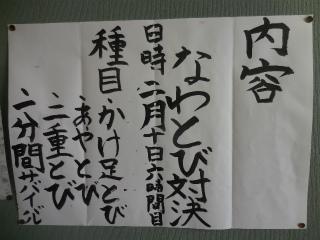 内容
なわとび対決
日時 二月十日六時間目
種目・かけ足とび
・あやとび
・二重とび
・二分間サバイバル